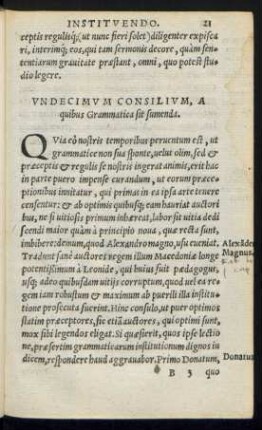 INSTITVENDO. 21
ceptis regulisq́; (ut nunc fieri solet) diligenter expiscari, interimq́; eos, qui tam sermonis decore, quàm sententiarum grauitate præstant, omni, quo potest studio legere.
VNDECIMVM CONSILIVM, A
quibus Grammatica sit sumenda.
QVia eò nostris temporibus peruentum est, ut
grammatice non sua sponte, uelut olim, sed &
præceptis & regulis se nostris ingerat animis, erit hac
in parte puero impense curandum, ut eorum præce
ptionibus innitatur, qui primas in ea ipsa arte tenere
censentur: & ab optimis quibusq; eam hauriat auctori
bus, ne si uitiosis primum inhæreat, labor sit uitia dedi
scendi maior quàm à principio noua, quæ recta sunt,
imbibere: demum, quod Alexandro magno, usu eueniat.
Alexāder
Magnus.
Tradunt sanè auctores regem illum Macedoniæ longe
potentissimum à Leonide, qui huius fuit pædagogus,
usq; adeo quibusdam uitijs corruptum, quod uel ea re
gem iam robustum & maximum ab puerili illa institu
tione prosecuta fuerint. Hinc consulo, ut puer optimos
statim præceptores, sic etiā auctores, qui optimi sunt,
mox sibi legendos eligat. Si quæsierit, quos ipse lectio
ne, præsertim grammaticarum institutionum dignos in
dicem, respondere haud aggrauabor. Primo Donatum,
Donatus
B 3 quo